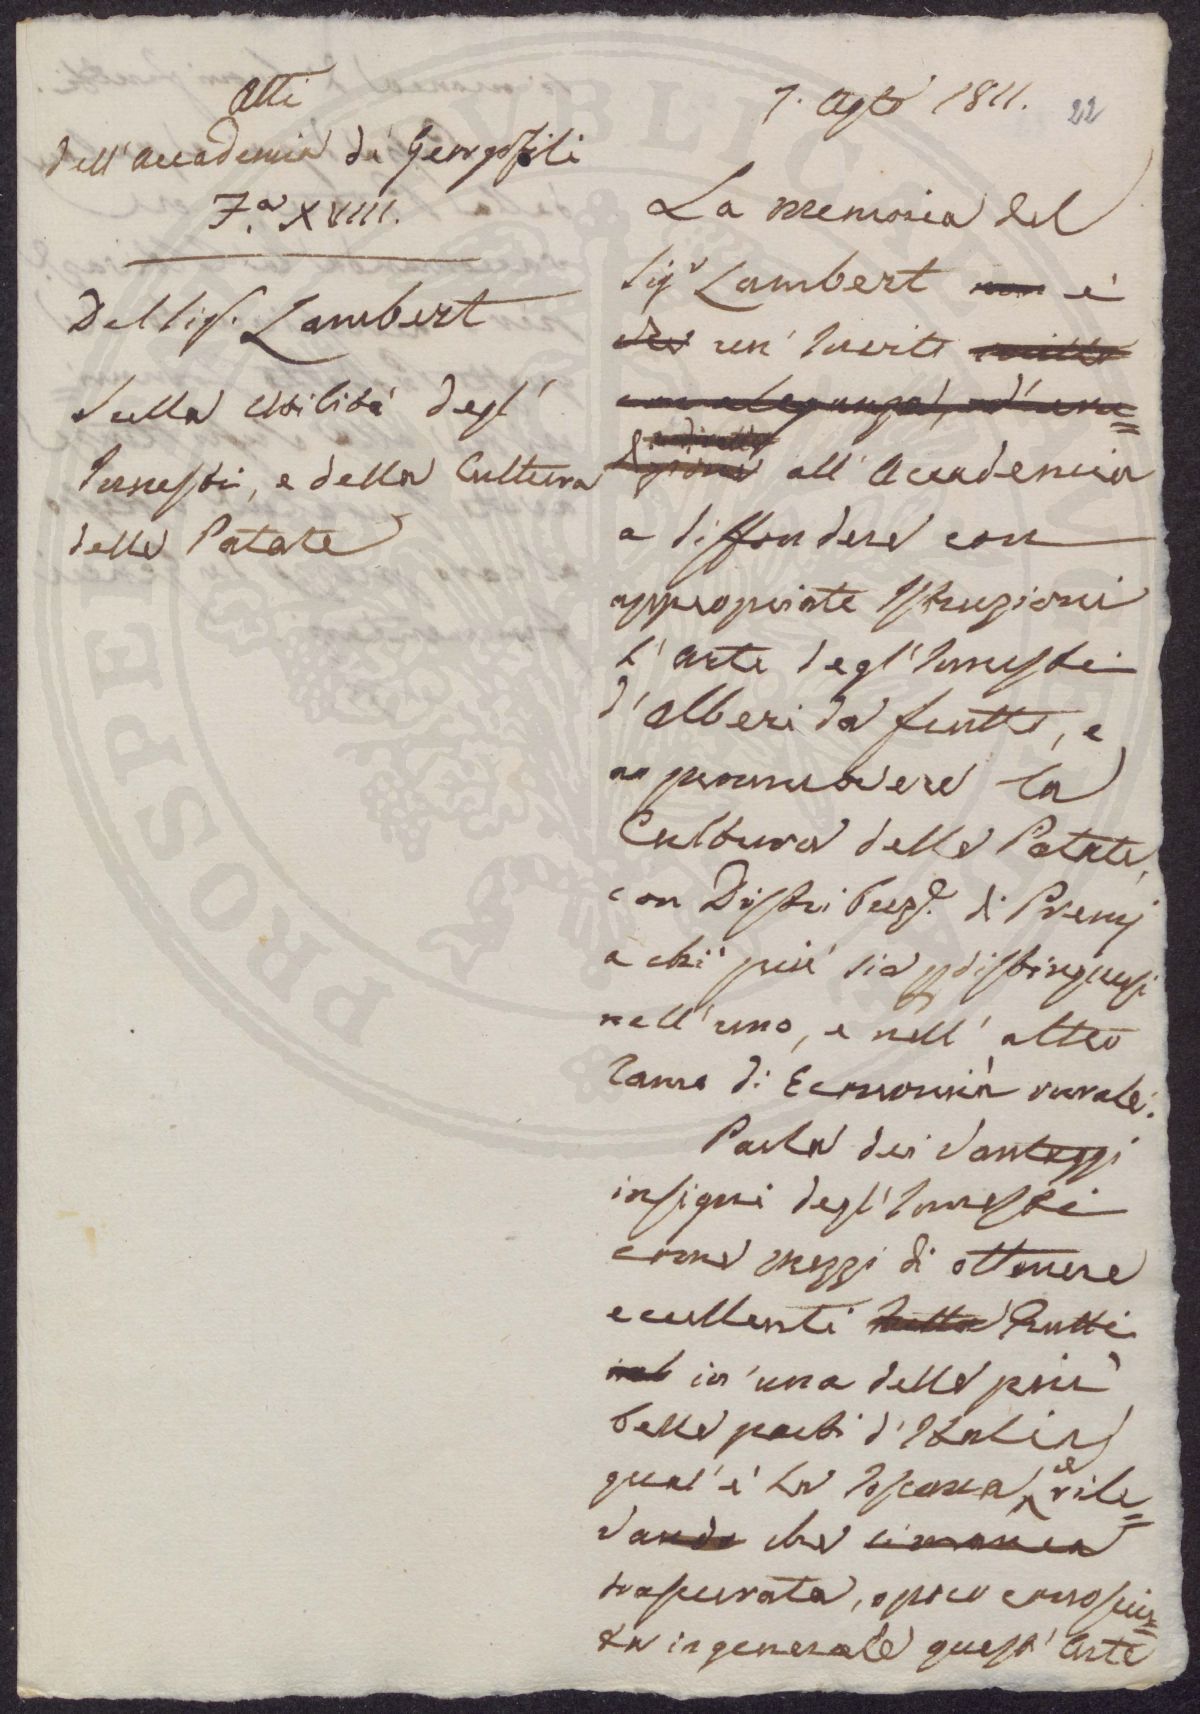 Atti
dell'Accademia dei Georgofili
F.a XVIII.
Del Sig. Lambert
Sulla Utilità degl'
Innesti, e della Cultura
delle Patate
7. Agto 1811.
22
La memoria del
Sigr Lambert non è
che un' Invito
con eleganza,
all' Accademia
a diffondere con
appropriate Istruzioni
l'arte degl'Innesti
d'alberi da frutto, e
a promuovere la
Cultura delle Patate,
con Distribuze. di Premj
a chi più sia distinguesi
nell'uno, e nell' altro
ramo di Economia rurale.
Parla dei Vantaggi
insigni degl'Innesti
come mezzi di ottenere
eccellenti frutti
in una delle più
belle parti d'Italia
qual'è la Toscana, e rile=
vando che rimanea
trascurata, o poco conosciu=
ta in generale quest'Arte
PUBLICAE
PROSPERITATI